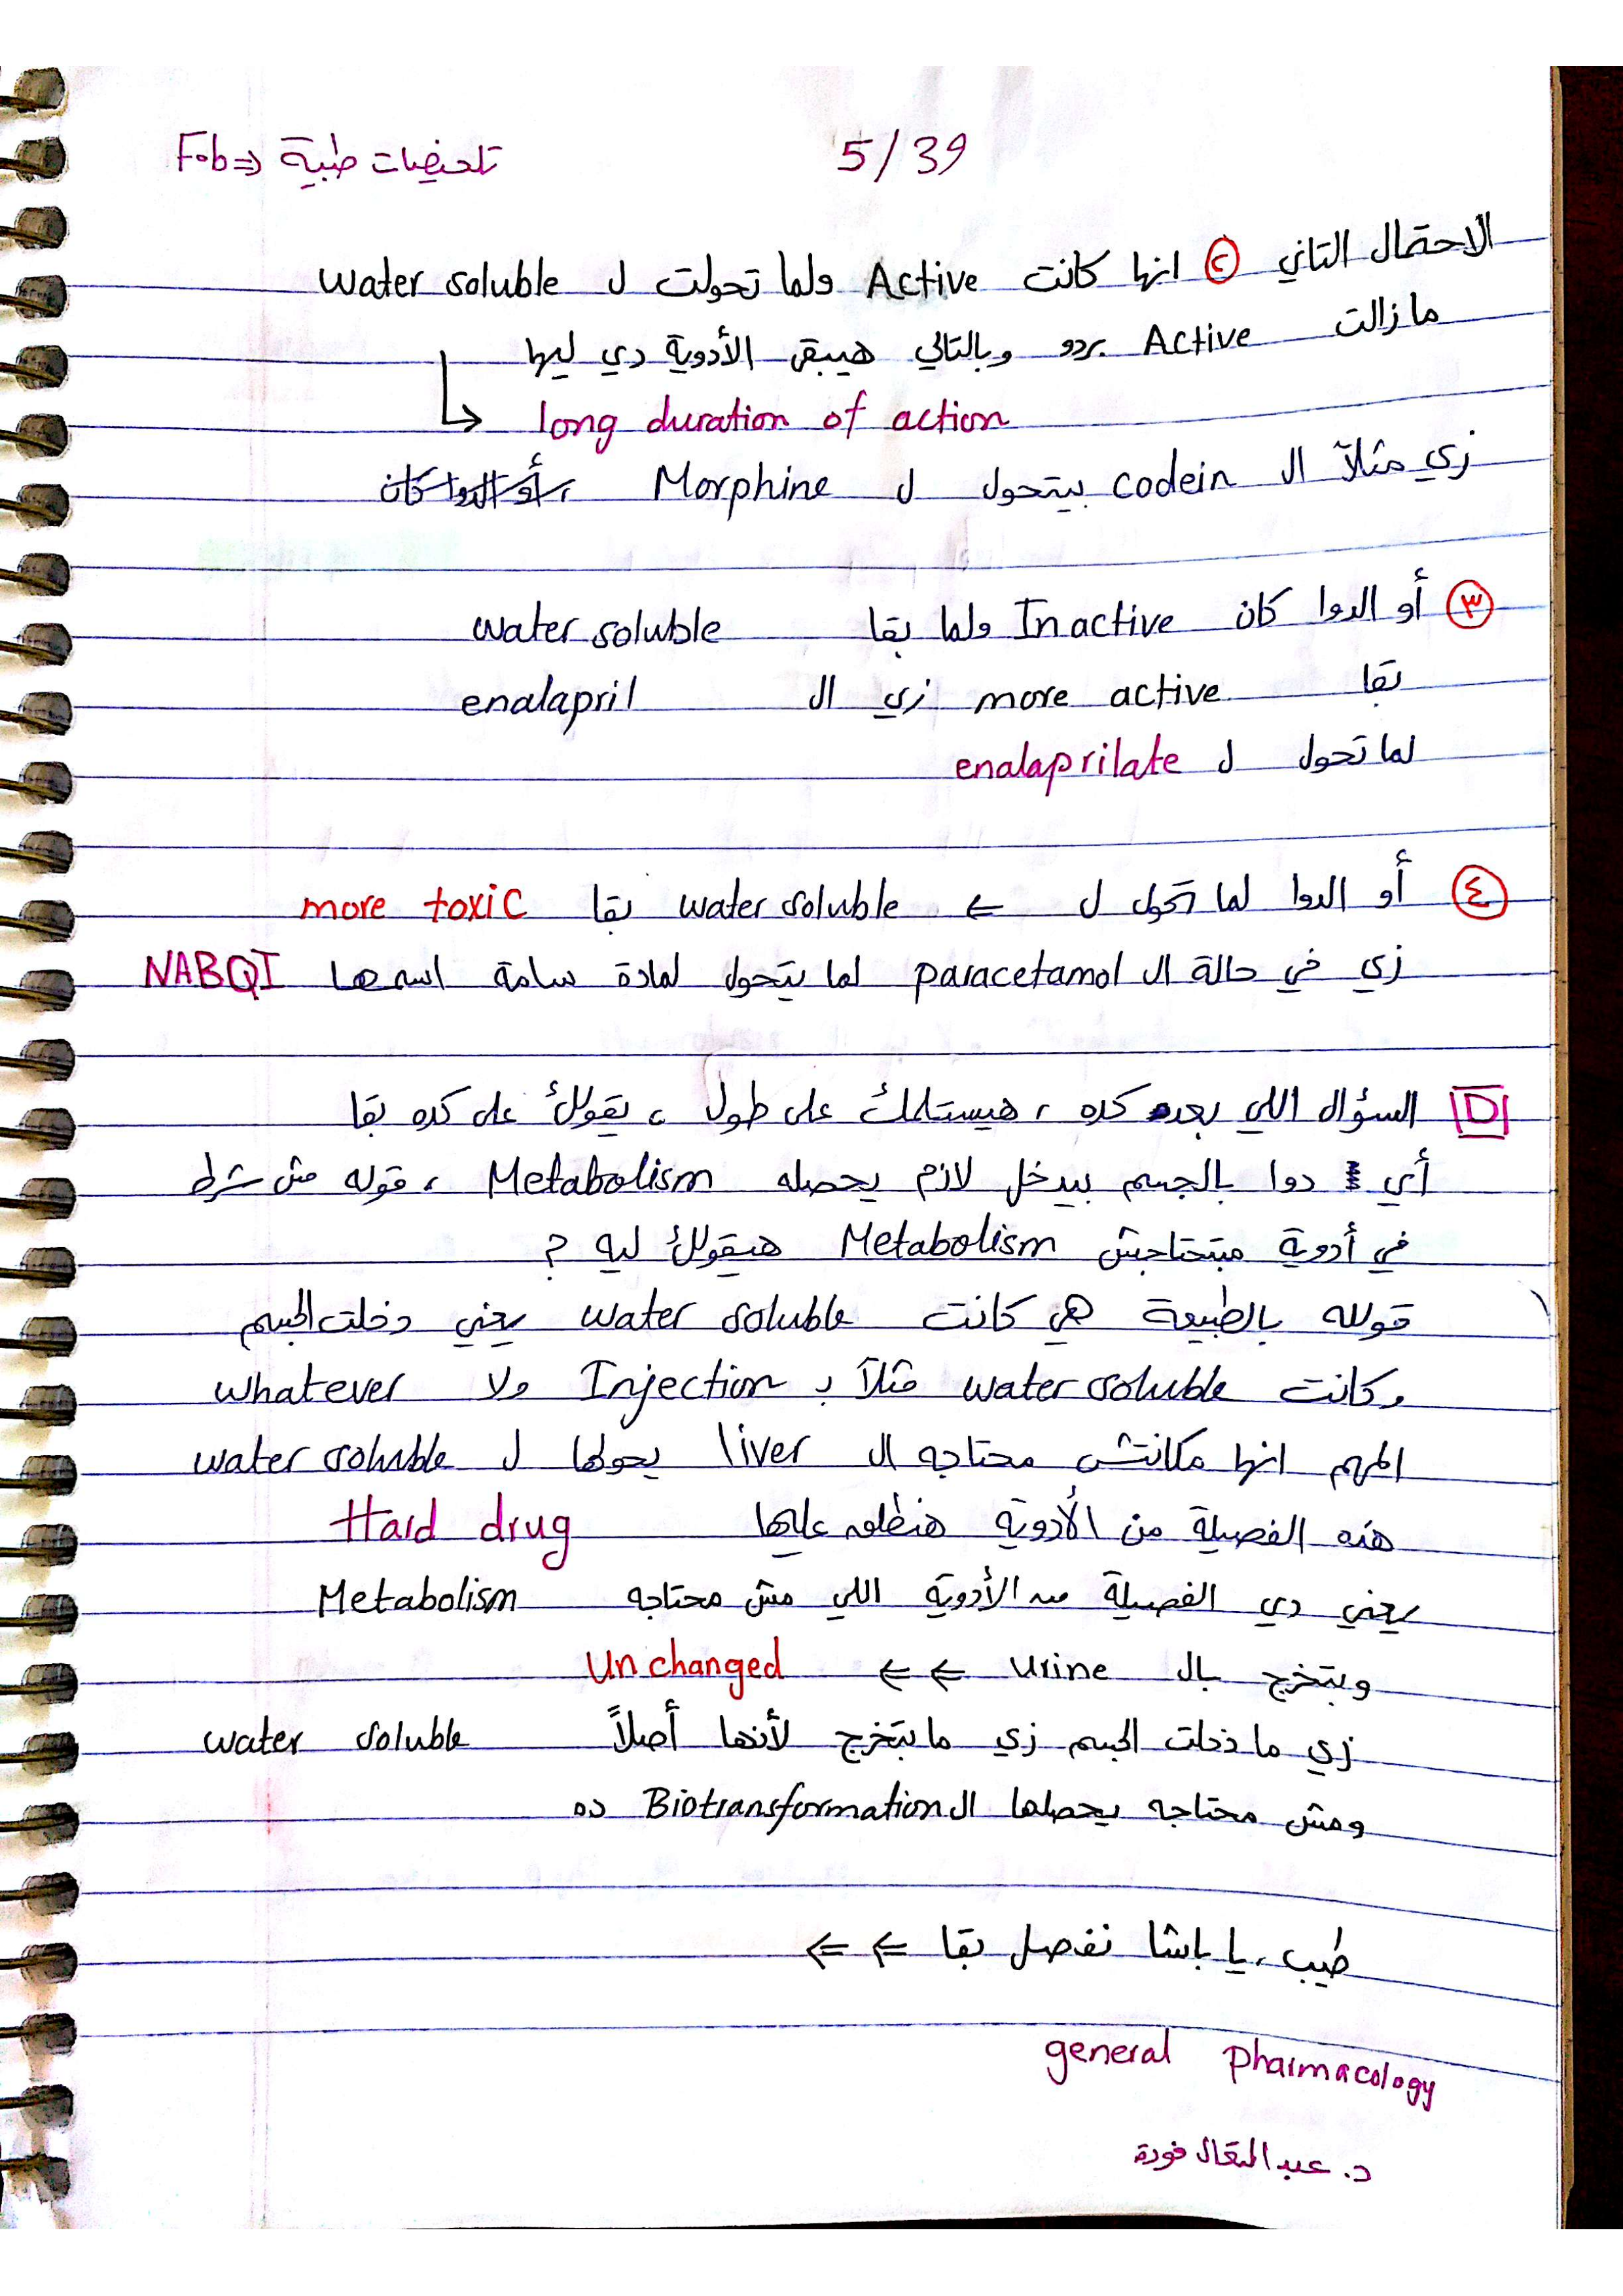 5/39
تلخيصات طبية ⇐ Fob
الاحتمال التاني ٢ انها كانت Active ولما تحولت ل water soluble
مازالت Active بردو وبالتالي هيبقى الأدوية دي ليها
long duration of action
زي مثلاً ال codein بيتحول ل Morphine ، أو الدوا كان
٣ أو الدوا كان Inactive ولما بقا water soluble
بقا more active زي ال enalapril
لما تحول ل enalaprilate
٤ أو الدوا لما تحول ل ← water soluble بقا more toxic
زي في حالة ال paracetamol لما يتحول لمادة سامة اسمها NABQI
D السؤال اللي بعد كده ، هيستلمك على طول ، يقولك على كده بقا
أي دوا بالجسم بيدخل لازم يحصله Metabolism ، قوله مش شرط
في أدوية مبتحتاجش Metabolism هيقولك ليه ؟
قوله بالطبيعة هي كانت water soluble يعني دخلت الجسم
وكانت water soluble مثلاً ب Injection ولا whatever
المهم انها مكانتش محتاجه ال liver يحولها ل water soluble
هذه الفصيلة من الأدوية هنطلق عليها Hard drug
يعني دي الفصيلة من الأدوية اللي مش محتاجه Metabolism
وبتخرج بال urine ⇐ ⇐ Unchanged
زي ما دخلت الجسم زي ما بتخرج لأنها أصلاً water soluble
ومش محتاجه يحصلها ال Biotransformation ده
طيب يا باشا نفصل بقا ⇐ ⇐
general pharmacology
د. عبد المتعال فودة